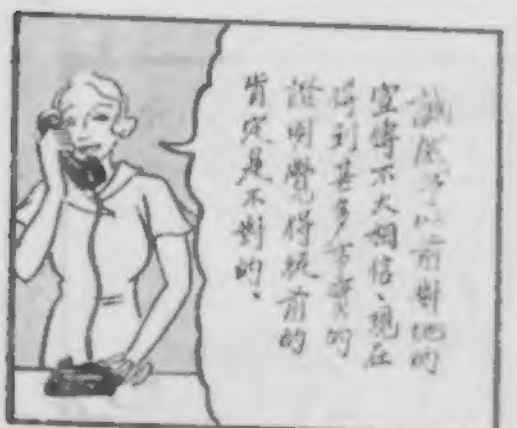 誠然予以前對他的
宣傳不大相信、現在
得到甚多事實的
證明覺得從前的
肯定是不對的、